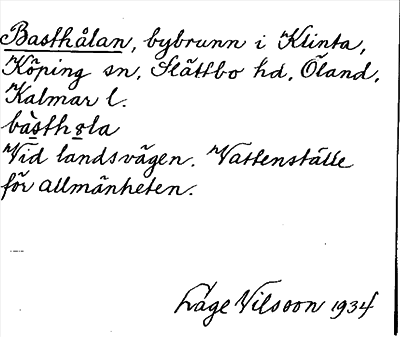 Basthålan, bybrunn i Klinta,
Köping sn, Slättbo hd, Öland,
Kalmar l.
bàsthɷla
Vid landsvägen. Vattenställe
för allmänheten.
Låge Nilsson 1934